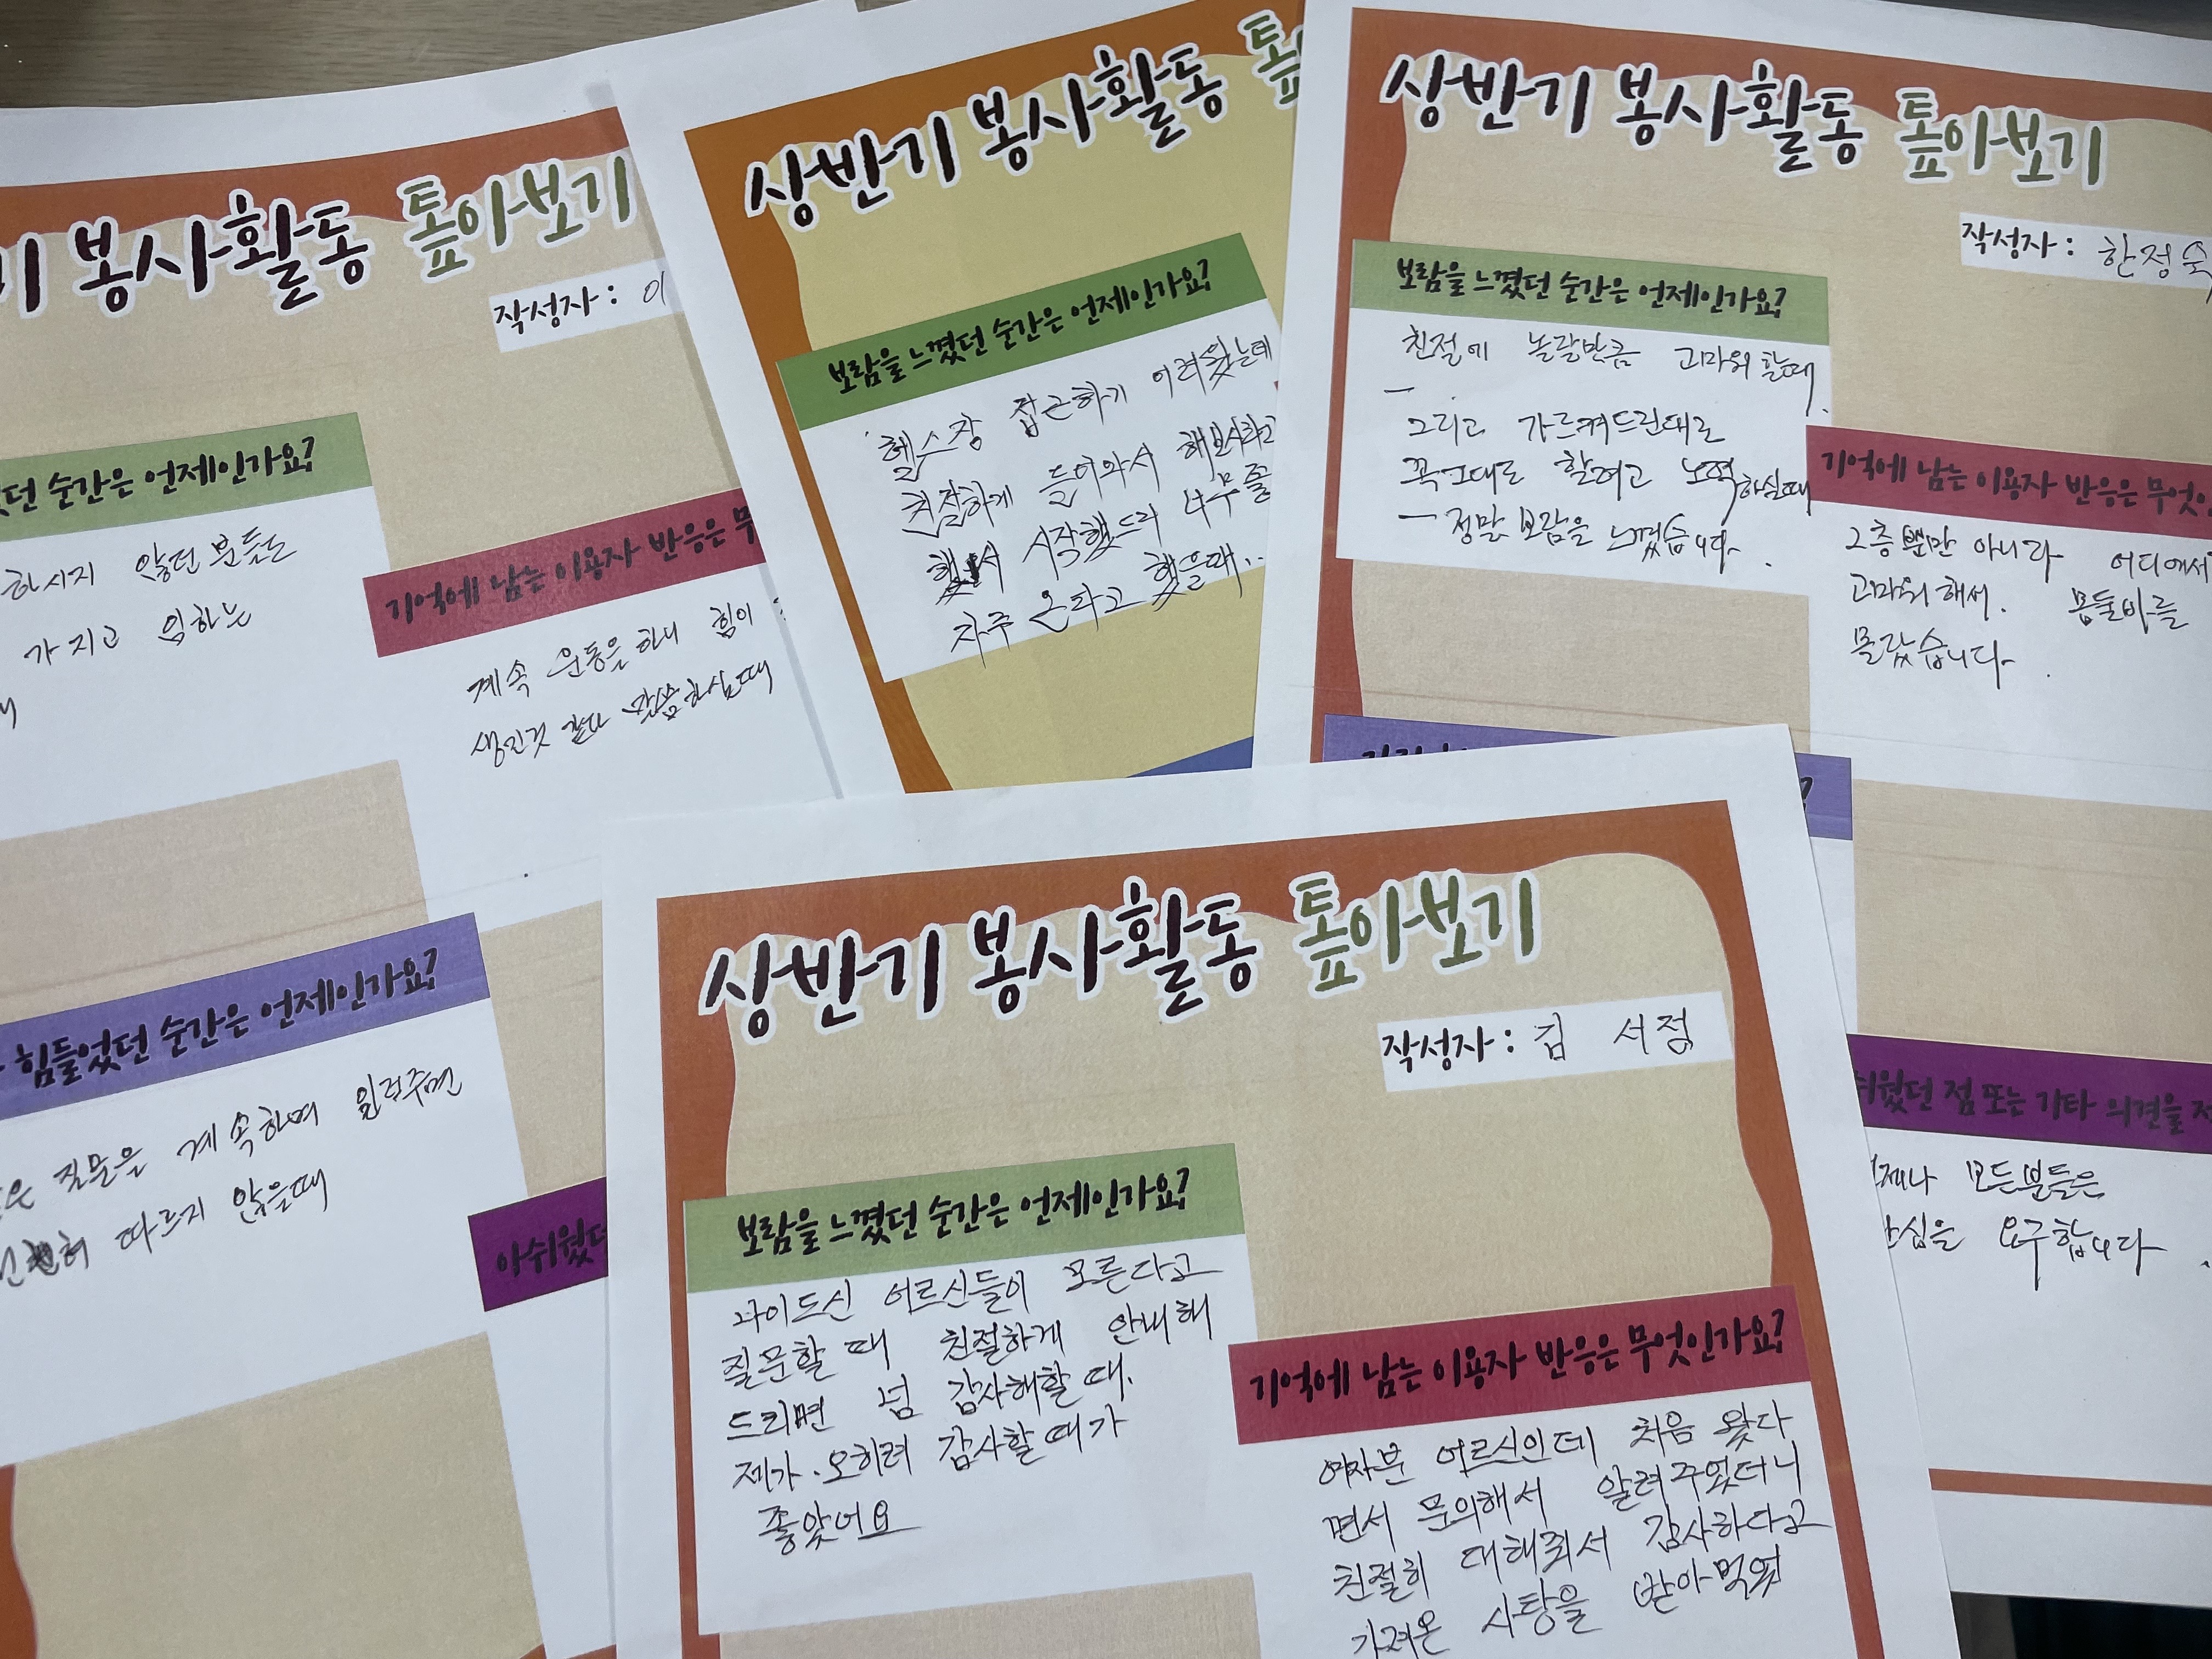 봉사활동 톺아보기
작성자: 이
던 순간은 언제인가요?
하시지 않던 분들도
가지고 임하는
기억에 남는 이용자 반응은 무
계속 운동을 하니 힘이
생긴것 같다 말씀하실때
힘들었던 순간은 언제인가요?
질문을 계속하며 알려주면
따르지 않을때
아쉬웠던
상반기 봉사활동 톺
보람을 느꼈던 순간은 언제인가요?
헬스장 접근하기 어려웠는데
친절하게 들어와서 해보시라고
했서 시작했드라 너무 좋
자주 온다고 했을때..
상반기 봉사활동 톺아보기
작성자: 한정숙
보람을 느꼈던 순간은 언제인가요?
친절에 놀랄만큼 고마워 할때
그리고 가르켜드린대로
꼭그대로 할려고 노력하실때
- 정말 보람을 느꼈습니다.
기억에 남는 이용자 반응은 무엇인
2층뿐만 아니라 어디에서
고마워해서. 몸둘바를
몰랐습니다.
쉬웠던 점 또는 기타 의견을 적
모든분들은
요구합니다.
상반기 봉사활동 톺아보기
작성자: 김 서정
보람을 느꼈던 순간은 언제인가요?
나이드신 어르신들이 모른다고
질문할 때 친절하게 안내해
드리면 넘 감사해할 때.
제가. 오히려 감사할 때가
좋았어요
기억에 남는 이용자 반응은 무엇인가요?
여자분 어르신인데 처음 왔다
면서 문의해서 알려주었더니
친절히 대해줘서 감사하다고
가져온 사탕을 받아먹었